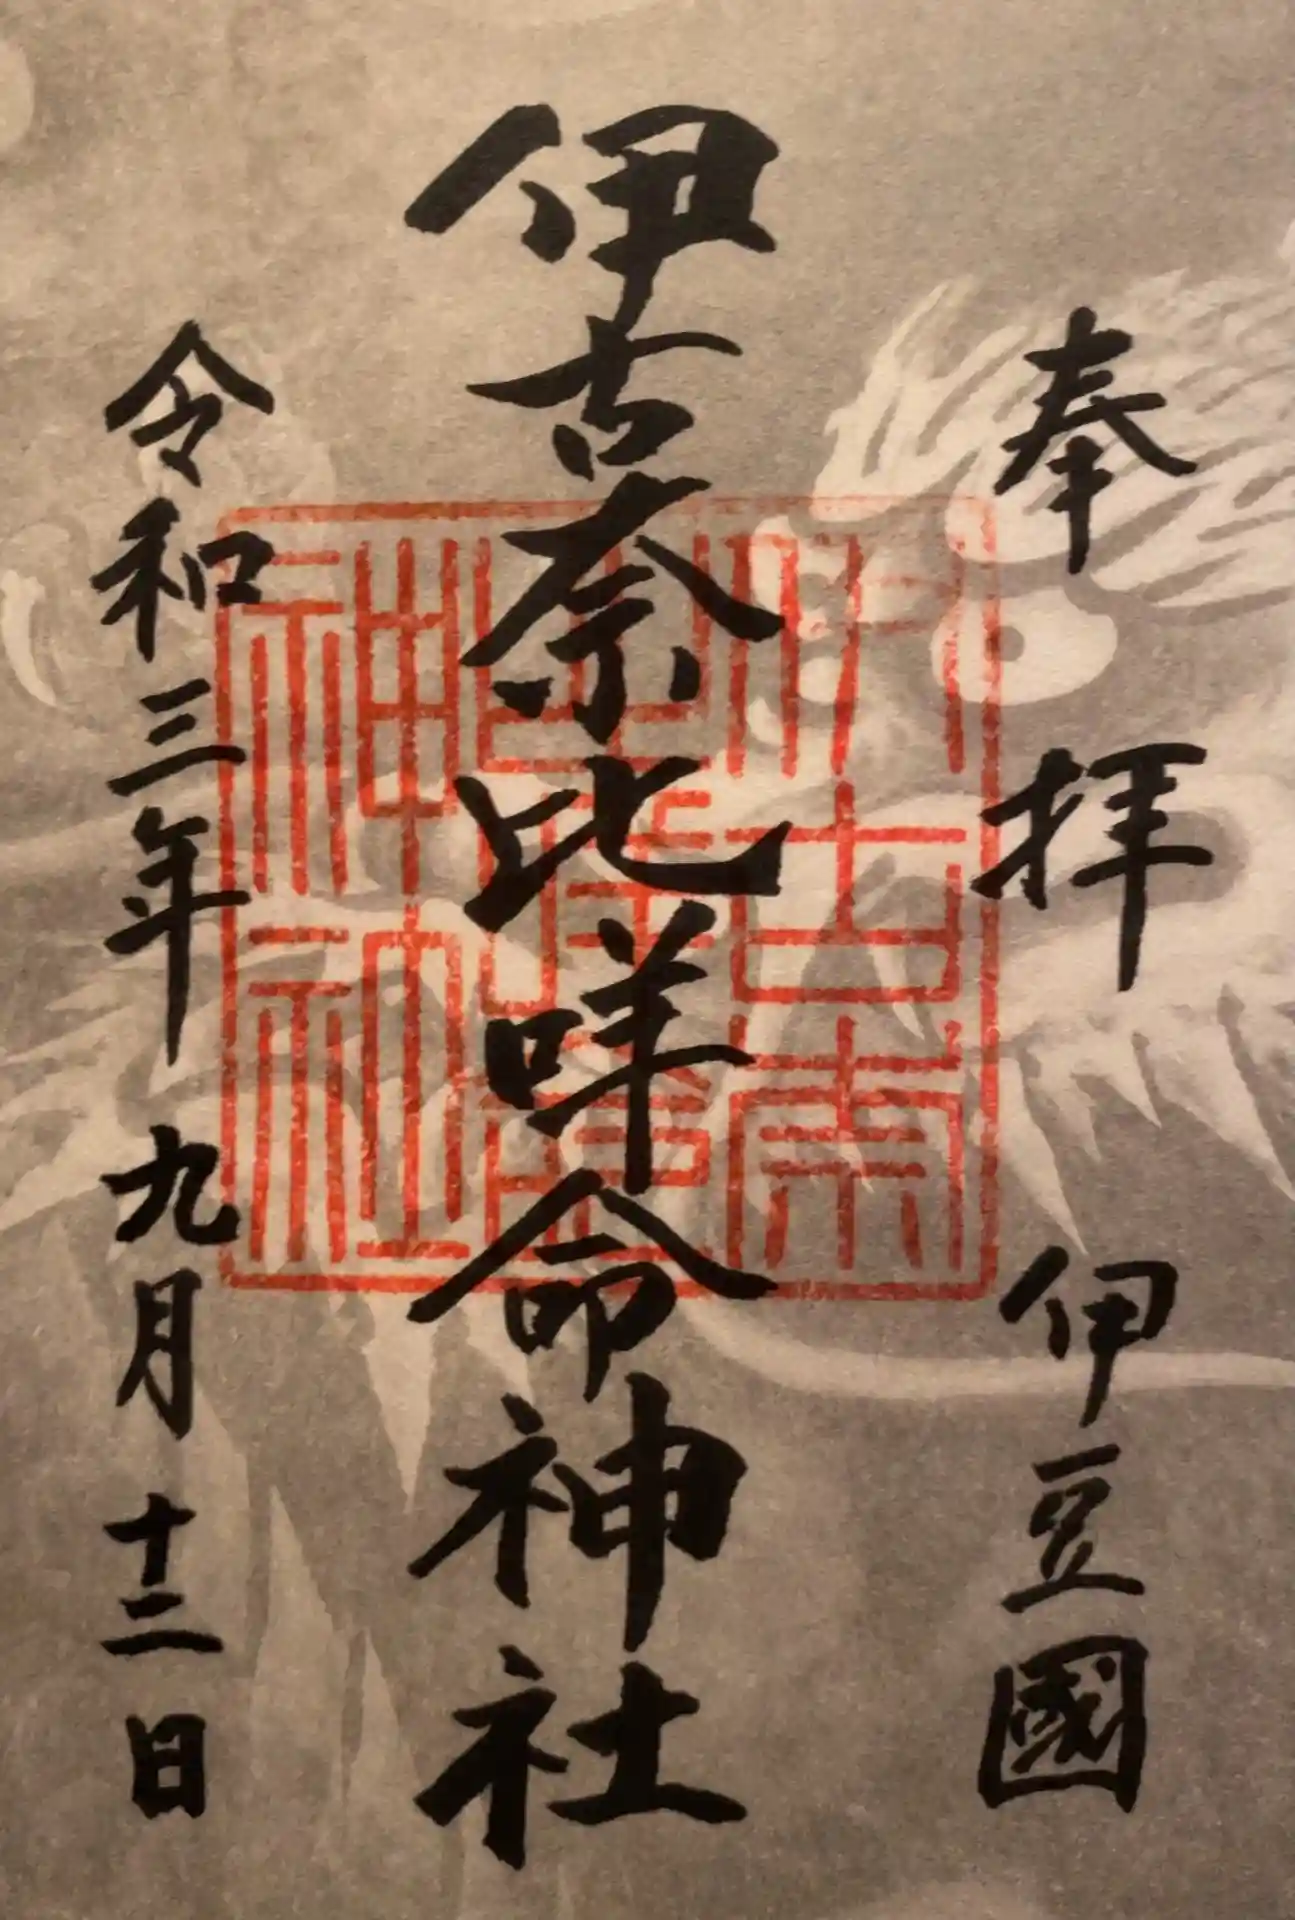 奉拝 伊豆國
伊古奈比咩命神社
令和三年九月十二日
伊古奈
比咩命
神社